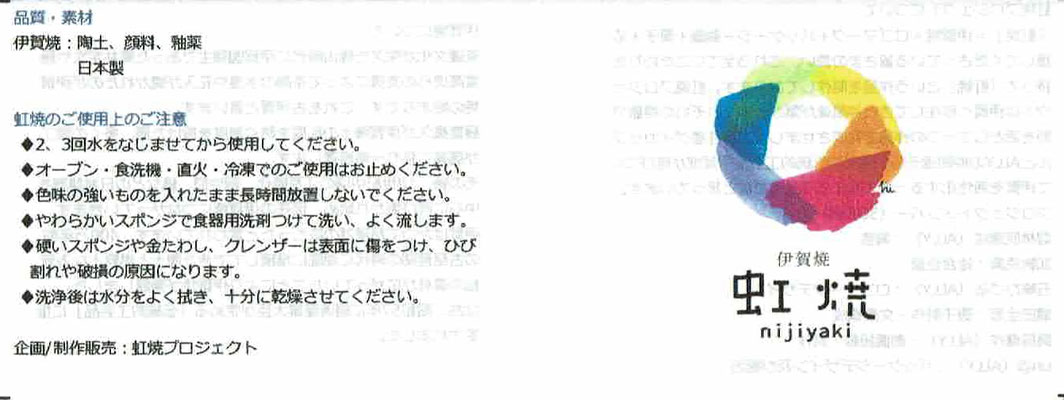 品質・素材
伊賀焼:陶土、顔料、釉薬
日本製
虹焼のご使用上のご注意
◆2、3回水をなじませてから使用してください。
◆オーブン・食洗機・直火・冷凍でのご使用はお止めください。
◆色味の強いものを入れたまま長時間放置しないでください。
◆やわらかいスポンジで食器用洗剤つけて洗い、よく流します。
◆硬いスポンジや金たわし、クレンザーは表面に傷をつけ、ひび
割れや破損の原因になります。
◆洗浄後は水分をよく拭き、十分に乾燥させてください。
企画/制作販売:虹焼プロジェクト
hi
伊賀焼
虹焼
nijiyaki